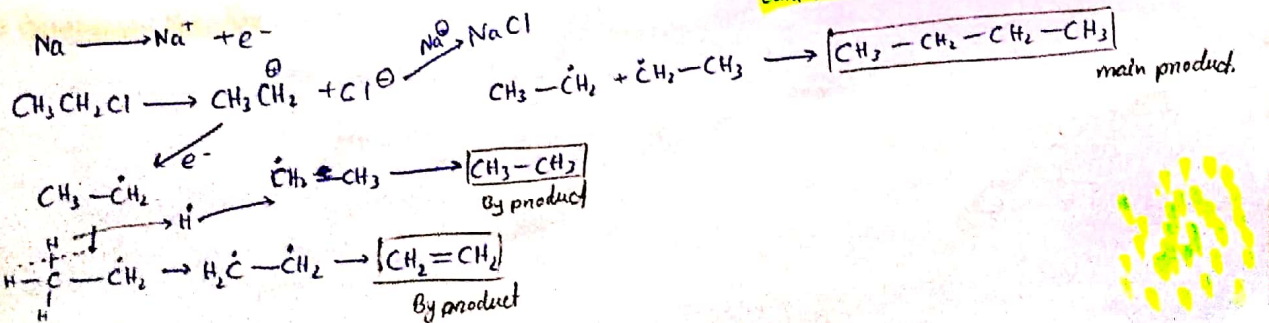 Na ⟶ Na⁺ + e⁻
CH₃CH₂Cl ⟶ CH₃CH₂⊕ + Cl⊖ Na⊕→ NaCl
e⁻
CH₃–ĊH₂
CH₃–ĊH₂ + ĊH₂–CH₃ ⟶ CH₃–CH₂–CH₂–CH₃
main product.
Ḣ → ĊH₂–CH₃ ⟶ CH₃–CH₃
By product
H
H–C–ĊH₂ → H₂Ċ–ĊH₂ → CH₂=CH₂
H
By product